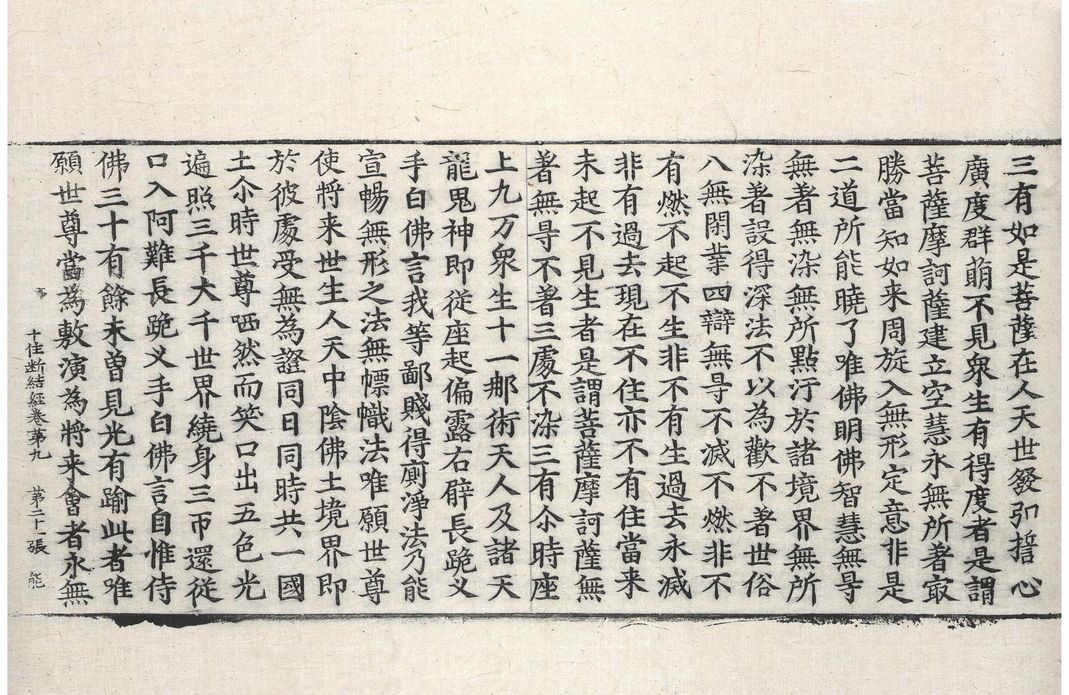 三有如是菩薩在人天世發弘誓心
廣度群萌不見衆生有得度者是謂
菩薩摩訶薩建立空慧永無所著㝡
勝當知如来周旋入無形定意非是
二道所能曉了唯佛明佛智慧無㝵
無著無染無所點汙於諸境界無所
染著設得深法不以為歡不著世俗
八無閑業四辯無㝵不滅不燃非不
有燃不起不生非不有生過去永滅
非有過去現在不住亦不有住當来
未起不見生者是謂菩薩摩訶薩無
著無㝵不著三處不染三有尒時座
上九万衆生十一那術天人及諸天
龍鬼神即從座起偏露右臂長跪叉
手白佛言我等鄙賤得廁淨法乃能
宣暢無形之法無幖幟法唯願世尊
使將来世生人天中陰佛土境界即
於彼處受無為證同日同時共一國
土尒時世尊哂然而笑口出五色光
遍照三千大千世界繞身三帀還從
口入阿難長跪叉手白佛言自惟侍
佛三十有餘未曾見光有踰此者唯
願世尊當為敷演為將来會者永無
十住断結經卷第九 第二十一張 能